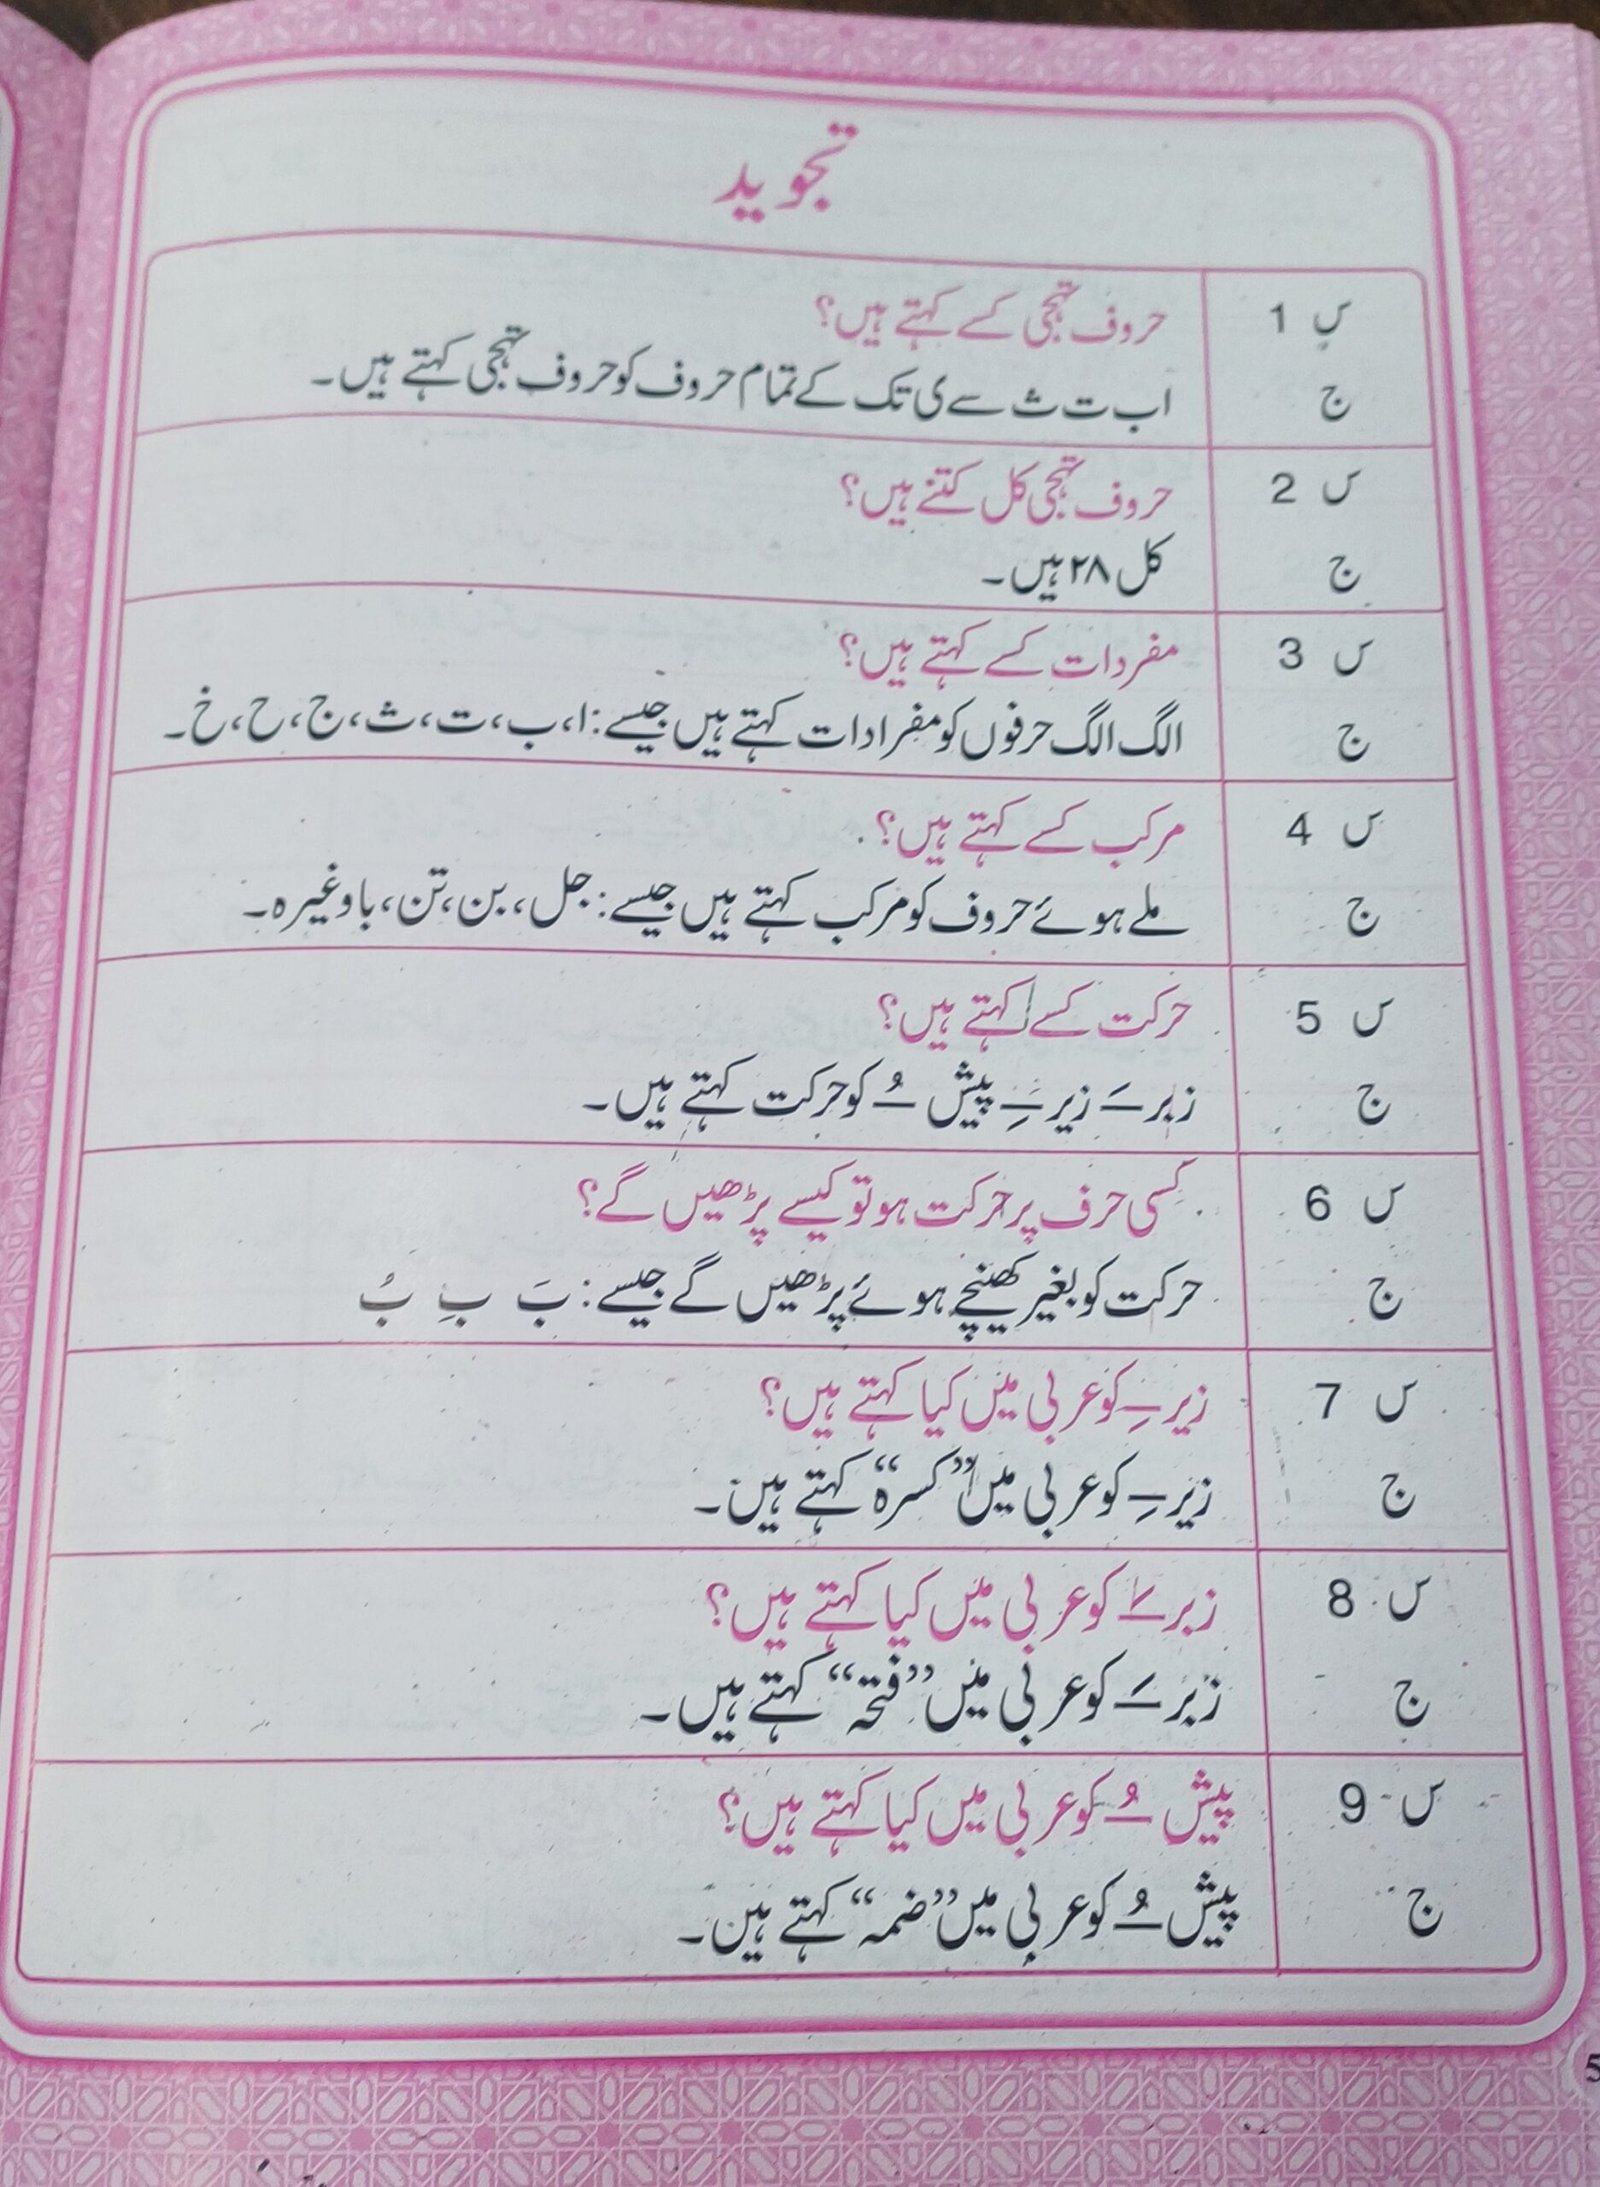 تجوید
س 1 حروف تہجی کسے کہتے ہیں؟
ج ا ب ت ث سے ی تک کے تمام حروف کو حروف تہجی کہتے ہیں۔
س 2 حروف تہجی کل کتنے ہیں؟
ج کل ۲۸ ہیں۔
س 3 مفردات کسے کہتے ہیں؟
ج الگ الگ حرفوں کو مفرادات کہتے ہیں جیسے: ا، ب، ت، ث، ج، ح، خ۔
س 4 مرکب کسے کہتے ہیں؟
ج ملے ہوئے حروف کو مرکب کہتے ہیں جیسے: جل، بن، تن، با وغیرہ۔
س 5 حرکت کسے کہتے ہیں؟
ج زبر ـَ زیر ـِ پیش ـُ کو حرکت کہتے ہیں۔
س 6 کسی حرف پر حرکت ہو تو کیسے پڑھیں گے؟
ج حرکت کو بغیر کھینچے ہوئے پڑھیں گے جیسے: بَ بِ بُ
س 7 زیر ـِ کو عربی میں کیا کہتے ہیں؟
ج زیر ـِ کو عربی میں ”کسرہ“ کہتے ہیں۔
س 8 زبر ـَ کو عربی میں کیا کہتے ہیں؟
ج زبر ـَ کو عربی میں ”فتحہ“ کہتے ہیں۔
س 9 پیش ـُ کو عربی میں کیا کہتے ہیں؟
ج پیش ـُ کو عربی میں ”ضمہ“ کہتے ہیں۔
5